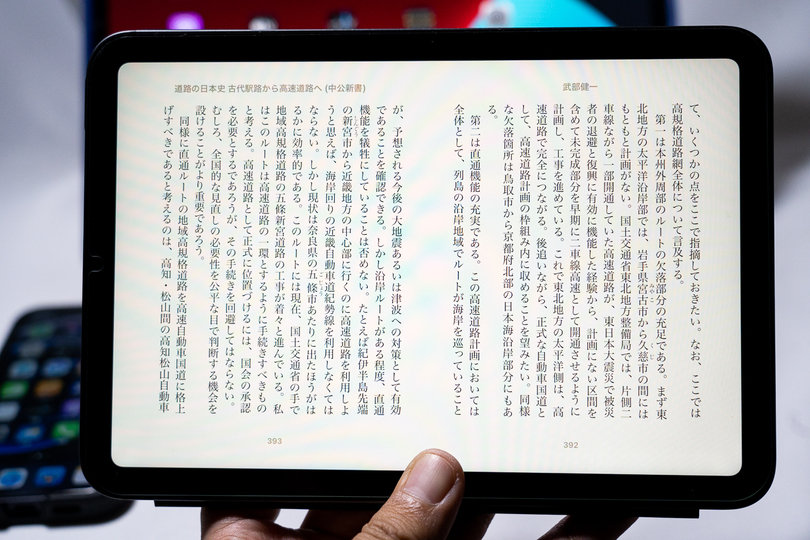 武部健一
て、いくつかの点をここで指摘しておきたい。なお、ここでは
高規格道路網全体について言及する。
第一は本州外周部のルートの欠落部分の充足である。まず東
北地方の太平洋沿岸部では、岩手県宮古市から久慈市の間には
もともと計画がない。国土交通省東北地方整備局では、片側二
車線ながら一部開通していた高速道路が、東日本大震災で被災
者の退避と復興に有効に機能した経験から、計画にない区間を
含めて未完成部分を早期に二車線高速として開通させるように
計画し、工事を進めている。これで東北地方の太平洋側は、高
速道路で完全につながる。後追いながら、正式な自動車国道と
して、高速道路計画の枠組み内に収めることを望みたい。同様
な欠落箇所は鳥取市から京都府北部の日本海沿岸部分にもあ
る。
第二は直通機能の充実である。この高速道路計画においては
全体として、列島の沿岸地域でルートが海岸を巡っていること
392
道路の日本史 古代駅路から高速道路へ (中公新書)
が、予想される今後の大地震あるいは津波への対策として有効
であることを確認できる。しかし沿岸ルートがある程度、直通
機能を犠牲にしていることは否めない。たとえば紀伊半島先端
の新宮市から近畿地方の中心部に行くのに高速道路を利用しよ
うと思えば、海岸回りの近畿自動車道紀勢線を利用しなくては
ならない。しかし現状は奈良県の五條市あたりに出たほうがは
るかに効率的である。このルートには現在、国土交通省の手で
地域高規格道路の五條新宮道路の工事が着々と進んでいる。私
はこのルートは高速道路の一環とするように手続きすべきもの
と考える。高速道路として正式に位置づけるには、国会の承認
を必要とするであろうが、その手続きを回避してはならない。
むしろ、全国的な見直しの必要性を公平な目で判断する機会を
設けることがより重要であろう。
同様に直通ルートの地域高規格道路を高速自動車国道に格上
げすべきであると考えるのは、高知・松山間の高知松山自動車
393